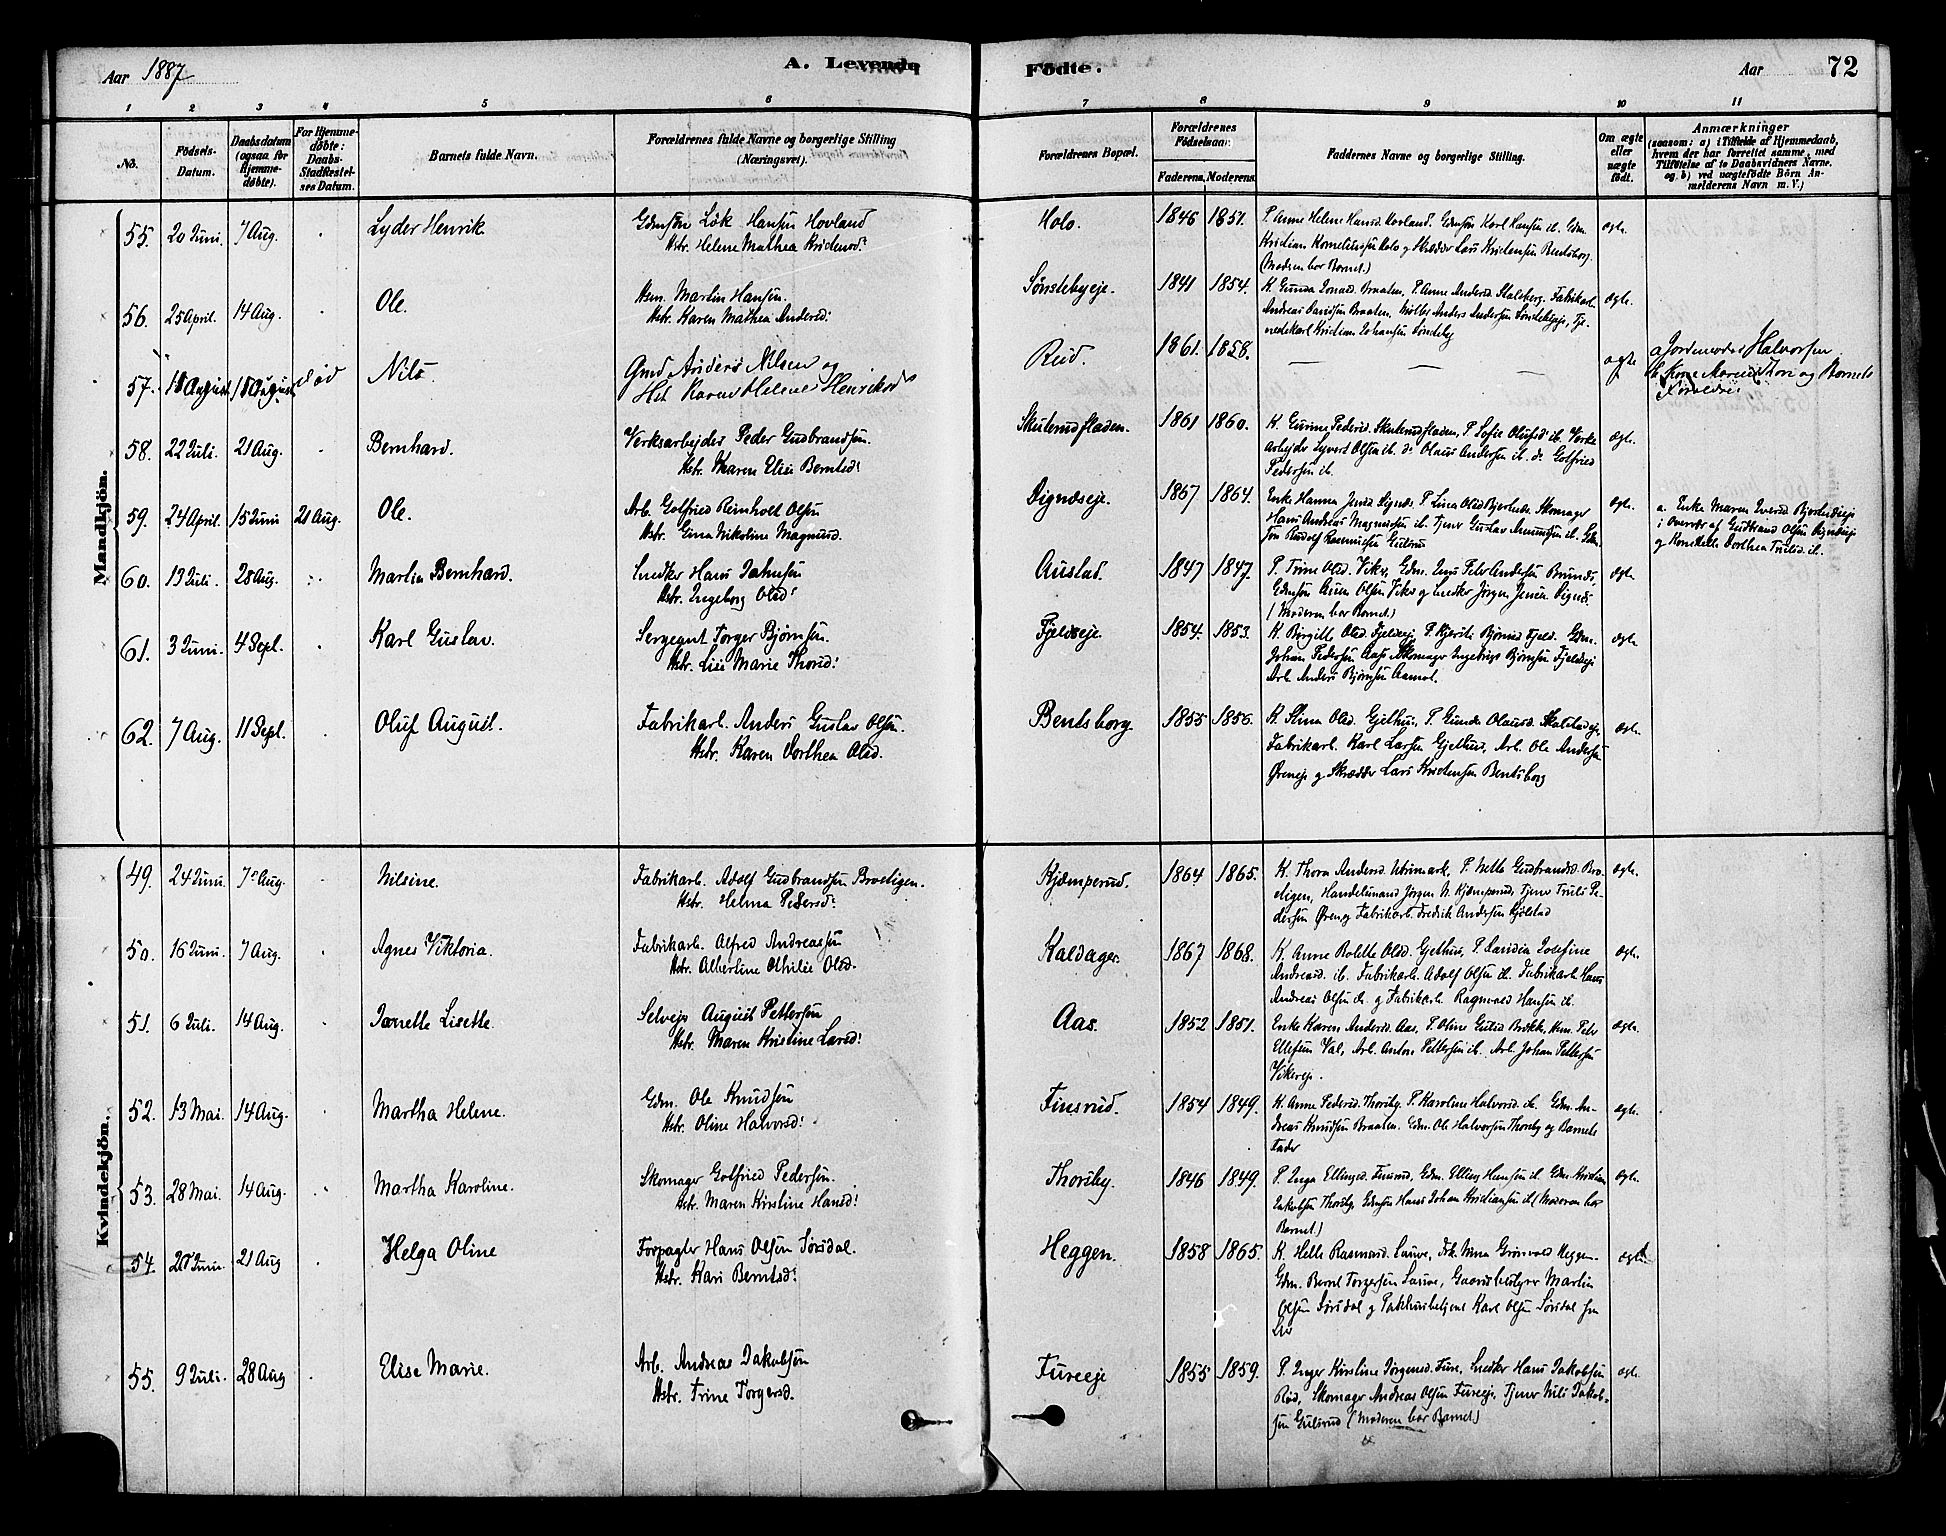 Aar 1887
A. Levende
Födte.
Aar
72
1 2 3 4 5 6 7 8 9 10 11
No.
Födsels-
Datum.
Daabsdatum
(ogsaa for
Hjemme-
döbte).
For Hjemme-
döbte:
Daabs-
Stadfæstel-
ses Datum.
Barnets fulde Navn.
Forældrenes fulde Navne og borgerlige Stilling
(Næringsvei).
Forældrenes Bopæl.
Forældrenes
Födselsaar.
Faderens. Moderens.
Faddernes Navne og borgerlige Stilling.
Om ægte
eller
uægte
födt.
Anmærkninger
(saasom: a) i Tilfælde af Hjemmedaab,
hvem der har forrettet samme, med
Tilföielse af to Daabsvidners Navne.
og. b) ved uægtefödte Börn An-
melderens Navn m. V.)
Mandkjön.
55. 20 Juni. 7 Aug. Lyder Henrik Gdmsön Løk Hansen Hovland
Hstr. Helene Mathea Kristensd:
Holo. 1846 1851. P. Anne Helene Hansd. Hovland. Gdmsön Karl Hansen ib. Gdm. ægte.
Kristian Korneliussen Holo og Skrædder Lars Kristensen Bentsborg.
(Moderen bar Barnet.)
56. 25 April. 14 Aug. Ole. Hsm. Martin Hansen.
Hstr. Karen Mathea Andersd:
Sønstebyeje. 1841 1854. K. Gunda Jonasd. Braaten. P. Anne Andersd. Stalsberg. Fabrikarb. ægte.
Andreas Davidsen Braaten, Møller Anders Andersen Søndebyeje, Tje-
nestekarl Kristian Johansen Sønsteby
57. 18 August 18 August død Nils. Gmd Anders Nilsen og
Hst Karen Helene Henriksd
Rud. 1861. 1858. — — — ægte
a Jordemoder Halvorsen
b. Kone Maren Thori og Barnets
Forældre
58. 22 Juli. 21 Aug. Bernhard. Verksarbejder Peder Gudbrandsen.
Hstr. Maren Elise Berntsd:
Skuterudfladen. 1861 1860. K. Gurine Pedersd. Skuterudfladen, P. Sofie Olufsd ib. Verks- ægte.
arbejder Syvert Olsen ib. do Olaus Andersen ib. do. Gotfried
Pedersen ib.
59. 24 April. 15 Juni 21 Aug. Ole. Arb. Gotfried Reinholt Olsen
Hstr. Gina Nikoline Magnusd.
Dignæseje. 1867 1864. Enke Hanna Jensd Dignæs. P. Lina Olsd Bjertnæs. Skomager ægte.
Hans Andreas Magnussen ib. Tjener Gustav Amundsen ib. Gdm.
søn Rudolf Rasmussen Gulsrud
a. Enke Maren Iversd Bjertnæseje
i overvær af Gudbrand Olsen Dignæseje
og Konstelle Dorthea Trulsd. ib.
60. 13 Juli. 28 Aug. Martin Bernhard. Snedker Hans Johnsen
Hstr. Ingeborg Olsd:
Austad. 1847 1847. P. Trine Olsd. Viker, Gdm. Jens Peter Andersen Brunæs, ægte
Gdmsön Aven Olsen Viker og Snedker Jørgen Jensen Dignæs.
(Moderen bar Barnet.)
61. 3 Juni. 4 Sept. Karl Gustav. Sergeant Torger Bjørnsen.
Hstr. Lise Marie Thorsd:
Fjeldseje. 1854. 1853. K. Birgitte Olsd. Fjeldseje P. Kjersti Bjørnsd Fjeld. Gdm. ægte
Johan Pedersen Aas, Skomager Ingebrigt Bjørnsen Fjeldseje
Arb. Anders Bjørnsen Aamot.
62. 7 Aug. 11 Sept. Oluf August. Fabrikarb. Anders Gustav Olsen.
Hstr. Karen Dorthea Olsd.
Bentsborg. 1855 1856. K. Stina Olsd. Gjethus, P. Gunda Olausd. Skalstadeje, ægte.
Fabrikarb. Karl Larsen Gjethus, Arb. Ole Andersen
Øreneje og Skrædder Lars Kristensen Bentsborg
Kvindekjön.
49. 24 Juni. 7 Aug. Nilsine. Fabrikarb. Adolf Gudbrandsen Broeligen.
Hstr. Helma Pedersd:
Kjæmperud. 1864 1865. K. Thora Andersd. Utvimark, P. Nella Gudbrandsd. Bro- ægte.
eligen, Handelsmand Jørgen N. Kjæmperud, Tjener Truls Pe-
dersen Øren og Fabrikarb. Fredrik Andersen Kjølstad
50. 16 Juni. 7 Aug. Agnes Viktoria. Fabrikarb. Alfred Andreassen
Hstr. Albertine Othilie Olsd.
Kaldager. 1867 1868. K. Anne Bolette Olsd. Gjethus, P. Laurdia Josefine ægte.
Andreasd. ib. Fabrikarb. Adolf Olsen ib. Fabrikarb. Hans
Andreas Olsen ib. og Fabrikarb. Ragnvald Hansen ib.
51. 6 Juli. 14 Aug. Janette Lisette. Selvejer August Pettersen
Hstr. Maren Kristine Larsd:
Aas. 1852 1851. Enke Karen Andersd. Aas. P. Oline Gulid Brekke, Hsm. Peter ægte.
Ellefsen Val, Arb. Anton Pettersen ib. Arb. Johan Pettersen
Vikereje.
52. 13 Mai. 14 Aug. Martha Helene. Gdm. Ole Knudsen
Hstr. Oline Halvorsd:
Finsrud. 1854 1849. K. Anne Pedersd. Thorsby. P. Karoline Halvorsd. ib. Gdm. An- ægte.
dreas Knudsen Braaten. Gdm. Ole Halvorsen Thorsby og Barnets
Fader
53. 28 Mai. 14 Aug. Martha Karoline. Skomager Gotfried Pedersen.
Hstr. Maren Kristine Hansd:
Thorsby. 1846 1849. P. Inga Ellingsd. Finsrud, Gdm. Elling Hansen ib. Gdm. Kristian ægte.
Jakobsen Thorsby, Gdmsön Hans Johan Kristiansen ib. (Moderen bar
Barnet)
54. 20 Juni. 21 Aug Helga Oline Forpagter Hans Olsen Sørsdal.
Hstr. Kari Berntsd:
Heggen. 1858 1865. K. Helle Rasmusd. Sauve, Frk. Nina Grønvold Heggen. ægte
Gdm. Bernt Torgersen Sauve, Gaardsbestyrer Martin
Olsen Sørsdal og Pakhusbetjent Karl Olsen Sørsdal fra
Lier
55. 9 Juli. 28 Aug Elise Marie. Arb. Andreas Jakobsen
Hstr. Trine Torgersd.
Fureeje 1855 1859. P. Inger Kirstine Jørgensd. Fure, Snedker Hans Jakobsen ægte.
Rud, Skomager Andreas Olsen Fureeje, Tjener Nils Jakob-
sen Gulsrud (Moderen bar Barnet)